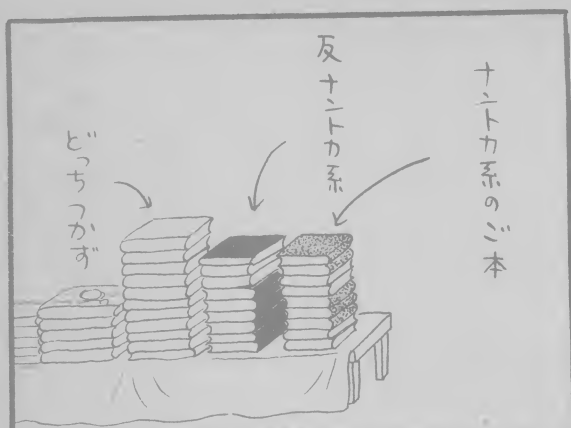 ナントカ系のご本
反ナントカ系
どっちつかず